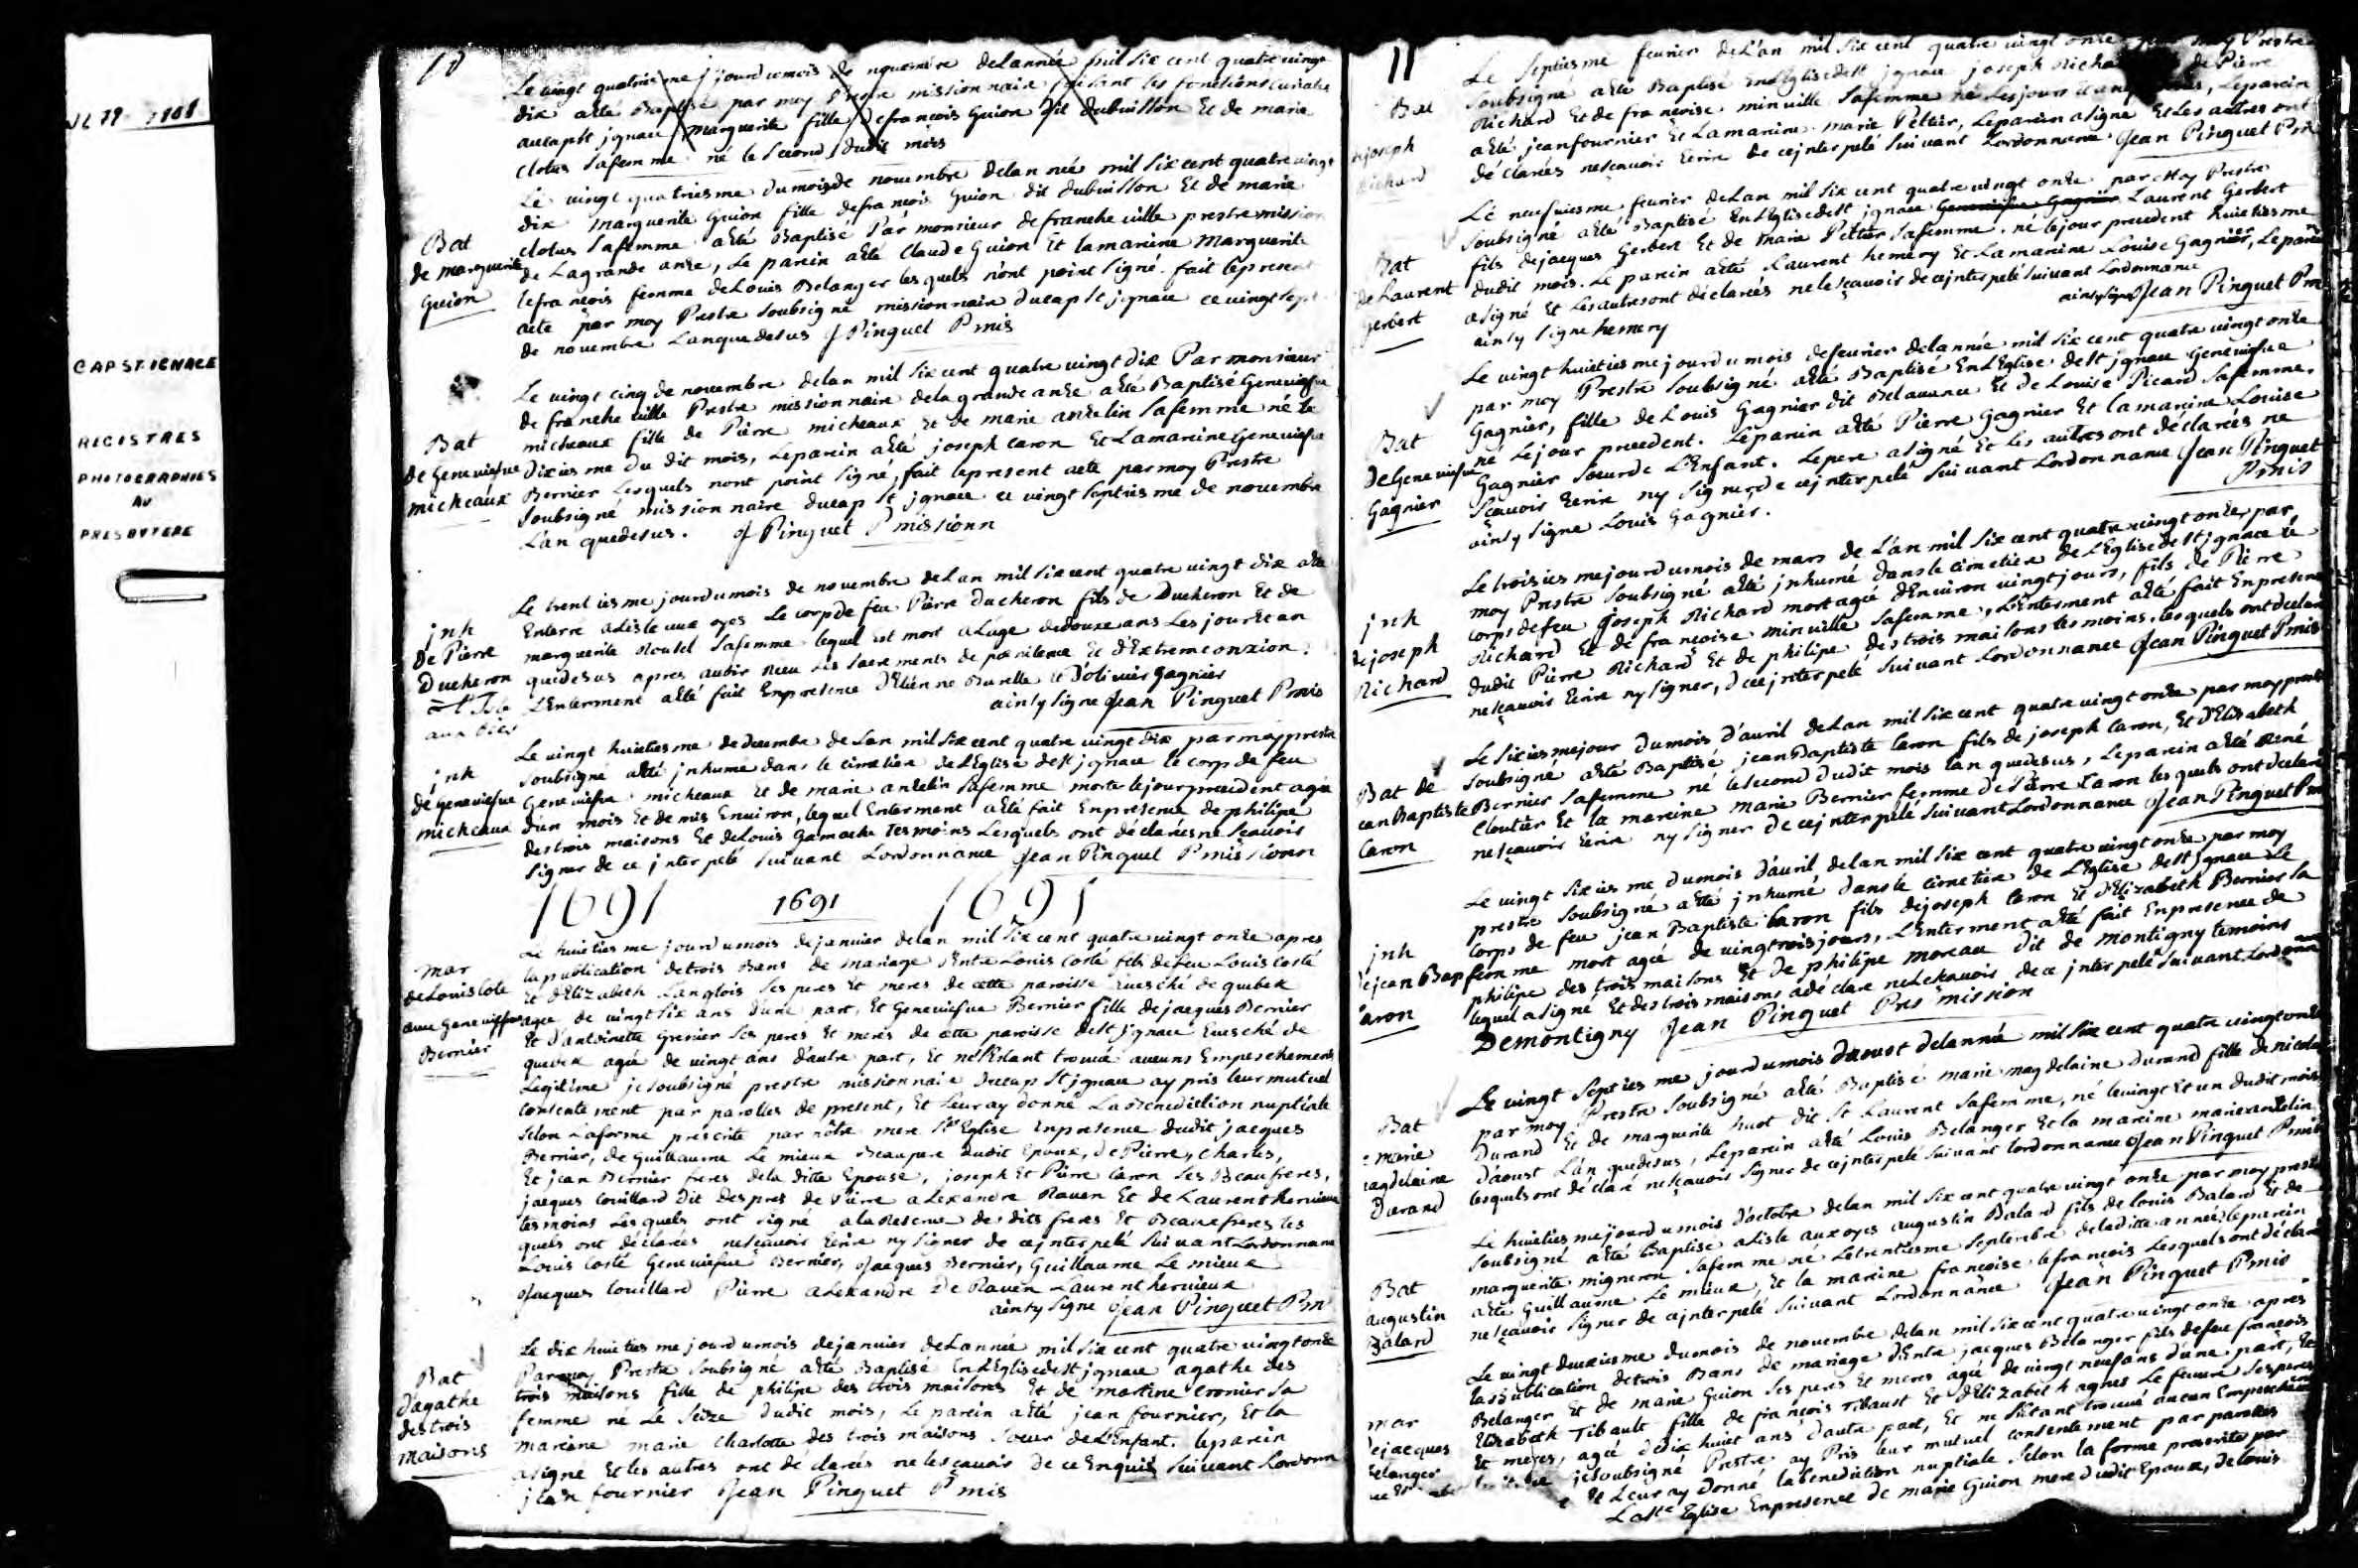 CAP ST IGNACE
REGISTRES
PHOTOGRAPHIES
AU
PRESBYTERE
10
Le vingt quatriesme jour du mois de novembre de lannée mil six cent quatre vingt
dix a été Baptisé par moy Prestre missionnaire faisant les fonctions curiales
au cap st jgnace Marguerite fille de francois Guion dit dubuisson Et de marie
clotus sa femme né le second dudit mois
Bat
de marguerite
Guion
Le vingt quatriesme du mois de novembre delan née mil six cent quatre vingt
dix Marguerite Guion fille defrancois Guion dit dubuisson Et de marie
clotus safemme aété Baptisé Par monsieur defrancheville prestre mission
de Lagrande anze, Le parein aété Claude Guion Et lamareine Marguerite
lefrançois femme deLouis Belanger lesquels n'ont point signé. fait lepresent
acte par moy Prestre soubsigné missionnaire ducap st jgnace ce vingt sept
de novembre Lanquedesus J Pinguet Pmis
Bat
de Geneviefve
micheaux
Le vingt cinq de novembre delan mil six cent quatre vingt dix Par monsieur
de francheville Prestre missionnaire dela grande anze aété Baptisé Geneviefve
micheaux fille de Pierre micheaux Et de marie anzelin safemme né le
Dixiesme du dit mois, Leparein aété joseph caron Et Lamareine Geneviefve
Bernier Lesquels nont point signé, fait lepresent acte parmoy Prestre
soubsigné missionnaire ducap st jgnace ce vingt septiesme de novembre
L'an quedesus. J Pinguet Pmissionn
jnh
De Pierre
Ducheron
a l'Isle
aux oies
Le trentiesme jourdumois de novembre delan mil sixcent quatre vingt dix aété
Enterré aLisle aux oyes Le corpde feu Pierre Ducheron fils de Ducheron Et de
marguerite Rousel safemme lequel est mort aLage dedouze ans Les jouretan
quedesus apres avoir Receu Les sacrements de penitence Et d'Extremeonxion.
L'Enterment aété fait Enpresence dEtienne Burelle et d'olivier gagnier
ainsy signe Jean Pinguet Pmis
jnh
de Geneviefve
micheaux
Le vingt huictiesme dedecembre deLan mil six cent quatre vingt dix parmoy prestre
soubsigné aété jnhumé dans le cimetiere deLEglise dest jgnace le corp de feu
Geneviefve micheaux Et de marie anzelin safemme morte lejourprecedent agée
d'un mois Et demis Environ, lequel Enterment aété fait Enpresence de philipe
destrois maisons Et deLouis Gamache Tesmoins Lesquels ont déclarésne scavoir
signer de ce jnterpelé suivant Lordonnance Jean Pinguet Pmissionn
1691 1691 1691
mar
deLouis Cote
avec Geneviefve
Bernier
Le huictiesme jourdumois dejanvier delan mil six cent quatre vingt onze apres
la publication detrois Bans de mariage dEntre Louis costé fils defeu Louis Costé
Et dElizabeth Langlois ses peres Et meres de cette paroisse Evesché de quebek
agée de vingt six ans dune part, Et Geneviefve Bernier fille dejacques Bernier
Et d'antoinette grenier ses peres Et meres de cette paroisse dest jgnace Evesché de
quebek agée de vingt ans d'autre part, Et neSEstant trouvé aucuns Empeschement
Legitime jesoubsigné prestre missionnaire ducap st jgnace ay pris leur mutuel
consentement par parolles de present, Et Leur ay donné La Benediction nuptiale
selon Laforme prescrite par nôtre mere ste Eglise Enpresence dudit jacques
Bernier, de Guillaume Le mieux Beaupere dudit Epoux, de Pierre, charles,
Et jean Bernier freres dela ditte Epouse, joseph Et Pierre caron ses Beaufreres,
jacques Couillard Dit despres de Pierre aLexandre Raven Et de Laurent hervieux
tesmoins Lesquels ont signé a la Reserve de dits freres Et Beauxfreres les
quels ont déclarées nescavoir Ecrire ny signer de cejnterpelé suivant Lordonnance
Louis costé Geneviefve Bernier, Jacques Bernier, Guillaume Le mieux
Jacques Couillard Pierre aLexandre De Raven Laurent hervieux
ainsy signe Jean Pinguet Pm
Bat
d'agathe
destrois
maisons
Le dix huictiesme jourdumois dejanvier deLannée mil six cent quatre vingt onze
Parmoy Prestre soubsigné aété Baptisé EnLEglisedest jgnace agathe des
trois maisons fille de philipe des trois maisons Et de martine cronier sa
femme né Le seize dudit mois, le parein aété jean fournier, Et la
mareine marie charlotte des trois maisons soeur deLEnfant. leparein
asigne Et les autres ont declarés nelescavoir De ce Enquis suivant Lordonn
jean fournier Jean Pinguet Pmis
11
Bat
dejoseph
Richard
Le septiesme fevrier deL'an mil six cent quatre vingt onze par moy Prestre
soubsigné aété Baptisé EnLEglisedest jgnace joseph Richard de Pierre
Richard Et de francoise minville safemme né Lesjours Leparein
aété jean fournier Et Lamareine marie Peltier, Leparein asigné Et Les autres ont
déclarés nescavoir Ecrire de cejnterpelé suivant Lordonnance Jean Pinguet Pm
Bat
de Laurent
gerbert
Le neufviesme fevrier deLan mil six cent quatre vingt onze par Moy Prestre
soubsigné aété Baptisé EnLEglisedest jgnace Geneviefve Gagnier Laurent Gerbert
fils dejacques Gerbert Et de Marie Peltier safemme, né lejour precedent huictiesme
dudit mois. Le parein aété Laurent hemery Et Lamareine Louise Gagnier, Le parein
asigné Et Les autresont déclarés neLescavoir decejnterpelé suivant Lordonnance
ainsy signe hemery ainsy signé Jean Pinguet Pm
Bat
De Geneviefve
Gagnier
Le vingt huictiesmejourdumois defevrier delannée mil six cent quatre vingt onze
par moy Prestre soubsigné aété Baptisé EnLEglise dest jgnace Geneviefve
Gagnier, fille de Louis Gagnier dit Belavance Et de Louise Picard safemme.
né Lejour precedent. Leparein aété Pierre Gagnier Et la mareine Louise
Gagnier soeurde L'Enfant. Lepere asigné Et Les autresont déclarés ne
scavoir Ecrire ny signerde cejnterpelé suivant Lordonnance Jean Pinguet
ainsy signe Louis Gagnier. Pmis
jnh
dejoseph
Richard
Le troisiesmejourdumois de mars de L'an mil six cent quatre vingt onze par
moy Prestre soubsigné aété jnhumé dansle cimetiere de LEglisedest jgnace le
corps defeu joseph Richard mortagée dEnviron vingtjours, fils de Pierre
Richard Et de francoise minville safemme, L'Enterment aété fait Enpresence
dudit Pierre Richard Et de philipe destrois maisons tesmoins, lesquels ontdeclaré
nescavoir Ecrire nysigner, decejnterpelé suivant Lordonnance Jean Pinguet Pmis
Bat de
ean Baptiste
Caron
Le sixiesmejour dumois d'avril deLan mil sixcent quatre vingt onze par moy prestre
soubsigné aété Baptisé jeanBaptiste Caron fils de joseph Caron, Et dElizabeth
Bernier safemme né lesecond dudit mois Lan quedesus, Leparein aété René
Cloutier Et la mareine marie Bernier femme de Pierre Caron lesquels ontdeclaré
nescavoir Ecrire ny signer De cejnterpelé suivantLordonnance Jean Pinguet Pm
jnh
dejean Bap
Caron
Le vingt sixiesme dumois d'avril delan mil six cent quatre vingt onze par moy
prestre soubsigné aété jnhumé dansle cimetiere de LEglise dest jgnace Le
corps de feu jean Baptiste Caron fils dejoseph Caron Et dElizabeth Bernier sa
femme mort agée de vingtroisjours, L'Enterment aété fait Enpresence de
philipe des trois maisons Et De philipe moreau dit de montigny temoins
lequel asigné Et destrois maisons adéclaré neLescavoir dece jnterpelé suivant Lordonnance
Demontigny Jean Pinguet Pres mission
Bat
marie
magdelaine
Durand
Le vingt septiesme jourdumois Daoust delannée mil six cent quatre vingtonze
par moy Prestre soubsigné aété Baptisé marie magdelaine durand fille de nicolas
Durand Et de marguerite huot dit St Laurent safemme, né levingt Et un dudit mois
d'aoust L'an quedesus, Leparein aété Louis Belanger Et la mareine marieanzelin
lesquelsont déclaré nescavoir signer de cejnterpelé suivant lordonnance Jean Pinguet Pmis
Bat
augustin
Balard
Le huictiesmejourdumois d'octobre delan mil six cent quatre vingt onze par moy prestre
soubsigné aété Baptisé aLisle auxoyes augustin Balard fils de louis Balard Et de
marguerite migneron safemme né Letrentiesme septembre deladitte année) leparein
aété Guillaume Le mieux, Et la mareine francoise lefrancois Lesquelsont déclaré
nescavoir signer de cejnterpelé suivant Lordonnance Jean Pinguet Pmis
mar
dejacques
Belanger
Le vingt deuxiesme dumois de novembre delan mil sixcent quatre vingt onze apres
laPublication detrois Bans de mariage dEntre jacques Belanger fils defeu françois
Belanger Et de marie Guion ses peres Et meres agé de vingt neufans d'une part, Et
Elizabeth Tibault fille de françois Tibaust Et dElizabeth agnes Le febvre ses peres
Et meres, agée dedix huict ans d'autre part, Et ne sEstant trouvé aucun Empeschement
jesoubsigné Prestre ay Pris leur mutuel consentement par parolles
Et Leur ay donné la benediction nuptiale selon la forme prescrite par
La ste Eglise Enpresence de marie Guion mere dudit Epoux, de louis